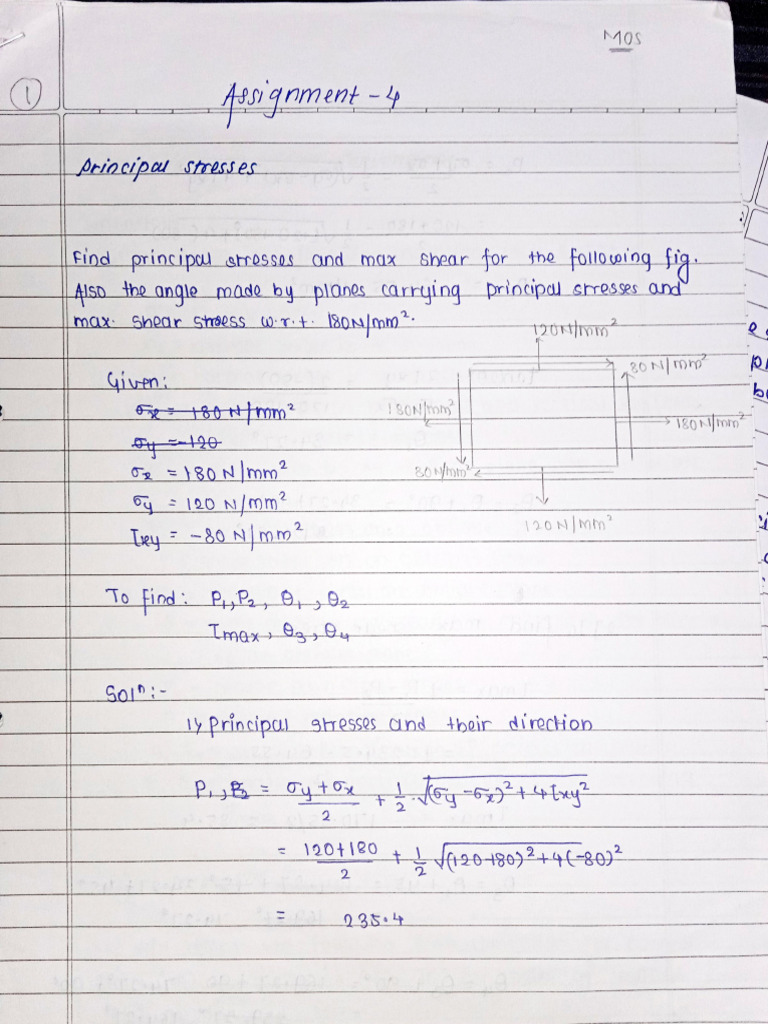 MOS
1
Assignment - 4
Principal stresses
Find principal stresses and max shear for the following fig.
Also the angle made by planes carrying principal stresses and
max. shear stress w.r.t. 180N/mm².
120N/mm²
80 N/mm²
180N/mm²
180N/mm²
80N/mm²
120N/mm²
Given:
σx = 180 N/mm²
σy = -120
σx = 180 N/mm²
σy = 120 N/mm²
τxy = -80 N/mm²
To find: P₁, P₂, θ₁, θ₂
τmax, θ₃, θ₄
Solⁿ:-
1) Principal stresses and their direction
P₁, P₂ = σy + σx / 2 + 1/2 √(σy - σx)² + 4τxy²
= 120 + 180 / 2 + 1/2 √(120 - 180)² + 4(-80)²
= 235.4